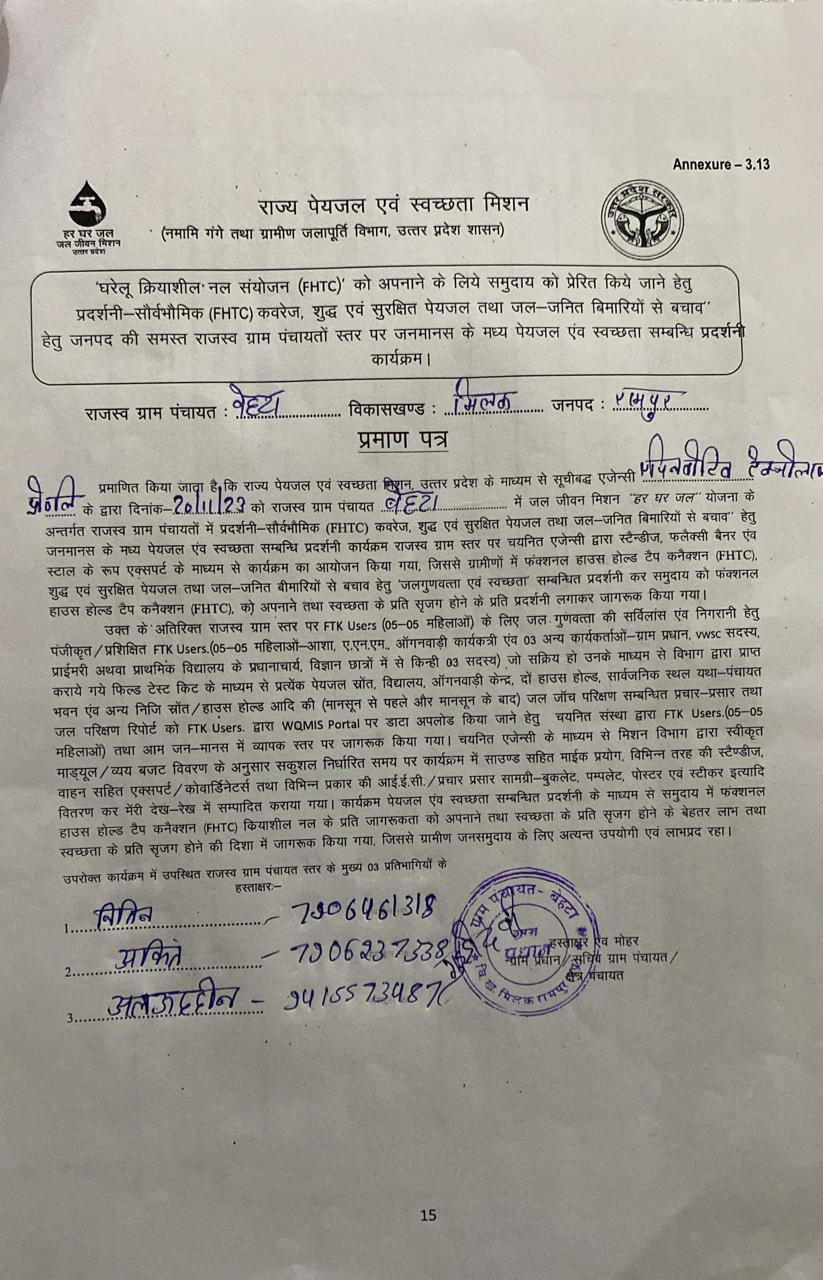 Annexure – 3.13
हर घर जल
जल जीवन मिशन
उत्तर प्रदेश
राज्य पेयजल एवं स्वच्छता मिशन
(नमामि गंगे तथा ग्रामीण जलापूर्ति विभाग, उत्तर प्रदेश शासन)
उत्तर प्रदेश सरकार
'घरेलू क्रियाशील नल संयोजन (FHTC)' को अपनाने के लिये समुदाय को प्रेरित किये जाने हेतु
प्रदर्शनी–सौर्वभौमिक (FHTC) कवरेज, शुद्ध एवं सुरक्षित पेयजल तथा जल–जनित बिमारियों से बचाव"
हेतु जनपद की समस्त राजस्व ग्राम पंचायतों स्तर पर जनमानस के मध्य पेयजल एंव स्वच्छता सम्बन्धि प्रदर्शनी
कार्यक्रम।
राजस्व ग्राम पंचायत : बेहटा विकासखण्ड : मिलक जनपद : रामपुर
प्रमाण पत्र
प्रमाणित किया जाता है कि राज्य पेयजल एवं स्वच्छता मिशन, उत्तर प्रदेश के माध्यम से सूचीबद्ध एजेन्सी
के द्वारा दिनांक–20/11/23 को राजस्व ग्राम पंचायत बेहटा में जल जीवन मिशन "हर घर जल" योजना के
अन्तर्गत राजस्व ग्राम पंचायतों में प्रदर्शनी–सौर्वभौमिक (FHTC) कवरेज, शुद्ध एवं सुरक्षित पेयजल तथा जल–जनित बिमारियों से बचाव" हेतु
जनमानस के मध्य पेयजल एंव स्वच्छता सम्बन्धि प्रदर्शनी कार्यक्रम राजस्व ग्राम स्तर पर चयनित एजेन्सी द्वारा स्टैन्डीज, फलैक्सी बैनर एंव
स्टाल के रूप एक्सपर्ट के माध्यम से कार्यक्रम का आयोजन किया गया, जिससे ग्रामीणों में फंक्शनल हाउस होल्ड टैप कनैक्शन (FHTC),
शुद्ध एवं सुरक्षित पेयजल तथा जल–जनित बीमारियों से बचाव हेतु 'जलगुणवत्ता एवं स्वच्छता' सम्बन्धित प्रदर्शनी कर समुदाय को फंक्शनल
हाउस होल्ड टैप कनैक्शन (FHTC), को अपनाने तथा स्वच्छता के प्रति सृजग होने के प्रति प्रदर्शनी लगाकर जागरूक किया गया।
उक्त के अतिरिक्त राजस्व ग्राम स्तर पर FTK Users (05–05 महिलाओं) के लिए जल गुणवत्ता की सर्विलांस एंव निगरानी हेतु
पंजीकृत/प्रशिक्षित FTK Users.(05–05 महिलाओं–आशा, ए.एन.एम., ऑगनवाड़ी कार्यकत्री एंव 03 अन्य कार्यकर्ताओं–ग्राम प्रधान, vwsc सदस्य,
प्राईमरी अथवा प्राथमिक विद्यालय के प्रधानाचार्य, विज्ञान छात्रों में से किन्ही 03 सदस्य) जो सक्रिय हो उनके माध्यम से विभाग द्वारा प्राप्त
कराये गये फिल्ड टेस्ट किट के माध्यम से प्रत्येक पेयजल स्रोत, विद्यालय, ऑगनवाड़ी केन्द्र, दों हाउस होल्ड, सार्वजनिक स्थल यथा–पंचायत
भवन एंव अन्य निजि स्रोत/हाउस होल्ड आदि की (मानसून से पहले और मानसून के बाद) जल जॉच परिक्षण सम्बन्धित प्रचार–प्रसार तथा
जल परिक्षण रिपोर्ट को FTK Users. द्वारा WQMIS Portal पर डाटा अपलोड किया जाने हेतु चयनित संस्था द्वारा FTK Users.(05–05
महिलाओं) तथा आम जन–मानस में व्यापक स्तर पर जागरूक किया गया। चयनित एजेन्सी के माध्यम से मिशन विभाग द्वारा स्वीकृत
माड्यूल/व्यय बजट विवरण के अनुसार सकुशल निर्धारित समय पर कार्यक्रम में साउण्ड सहित माईक प्रयोग, विभिन्न तरह की स्टैण्डीज,
वाहन सहित एक्सपर्ट/कोवार्डिनेटर्स तथा विभिन्न प्रकार की आई.ई.सी./प्रचार प्रसार सामग्री–बुकलेट, पम्पलेट, पोस्टर एवं स्टीकर इत्यादि
वितरण कर मेंरी देख–रेख में सम्पादित कराया गया। कार्यक्रम पेयजल एंव स्वच्छता सम्बन्धित प्रदर्शनी के माध्यम से समुदाय में फंक्शनल
हाउस होल्ड टैप कनैक्शन (FHTC) कियाशील नल के प्रति जागरूकता को अपनाने तथा स्वच्छता के प्रति सृजग होने के बेहतर लाभ तथा
स्वच्छता के प्रति सृजग होने की दिशा में जागरूक किया गया, जिससे ग्रामीण जनसमुदाय के लिए अत्यन्त उपयोगी एवं लाभप्रद रहा।
उपरोक्त कार्यक्रम में उपस्थित राजस्व ग्राम पंचायत स्तर के मुख्य 03 प्रतिभागियों के
हस्ताक्षरः–
1. नितिन – 7906461318
2. अंकित – 7906237338
3. – 9415573487
ग्राम पंचायत- बेहटा
प्रधान
वि.ख. मिलक रामपुर
हस्ताक्षर एंव मोहर
ग्राम प्रधान/सचिव ग्राम पंचायत/
क्षेत्र पंचायत
15